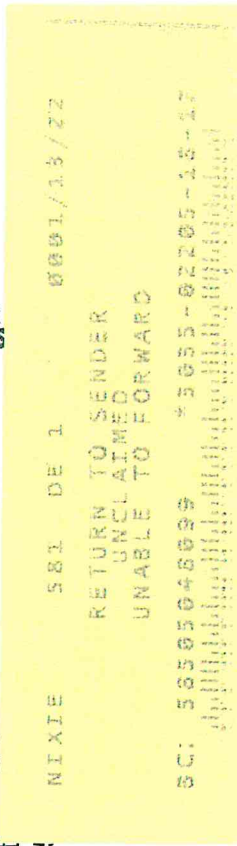 NIXIE 581 DE 1 0001/13/22
RETURN TO SENDER
UNCLAIMED
UNABLE TO FORWARD
BC: 58505046099 *5055-02205-16-17